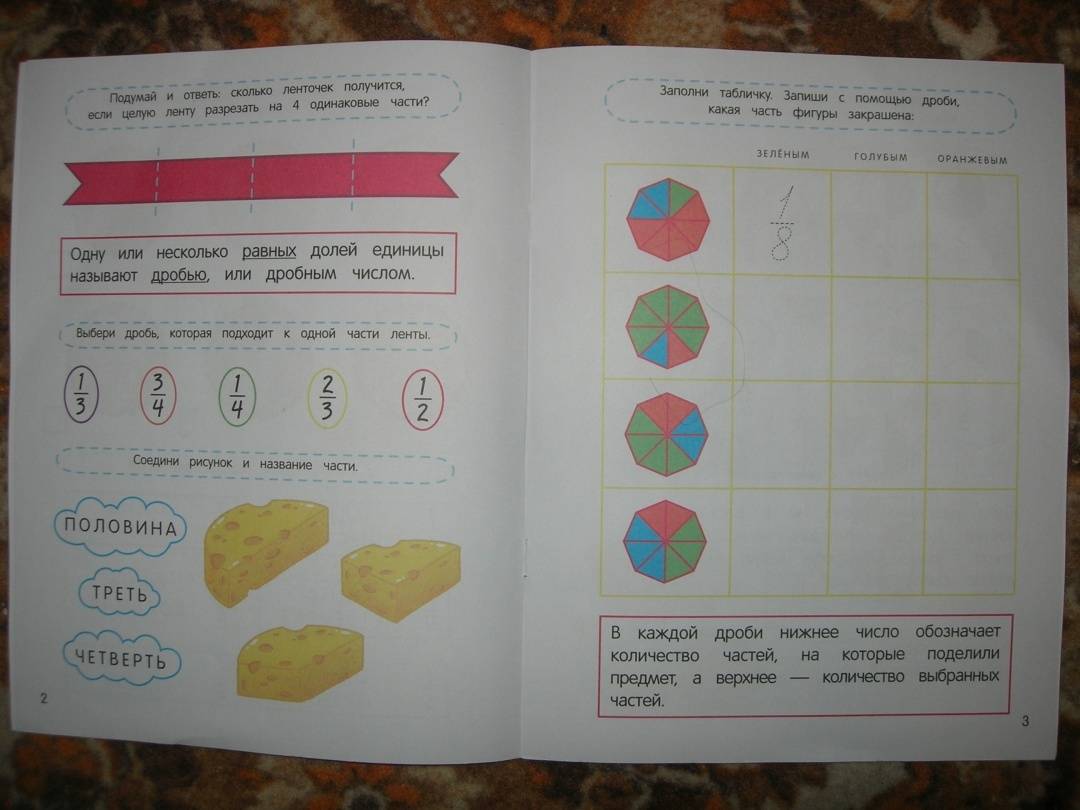 Подумай и ответь: сколько ленточек получится,
если целую ленту разрезать на 4 одинаковые части?
Одну или несколько равных долей единицы
называют дробью, или дробным числом.
Выбери дробь, которая подходит к одной части ленты.
1/3 3/4 1/4 2/3 1/2
Соедини рисунок и название части.
ПОЛОВИНА
ТРЕТЬ
ЧЕТВЕРТЬ
2
Заполни табличку. Запиши с помощью дроби,
какая часть фигуры закрашена:
ЗЕЛЁНЫМ ГОЛУБЫМ ОРАНЖЕВЫМ
1/8
В каждой дроби нижнее число обозначает
количество частей, на которые поделили
предмет, а верхнее — количество выбранных
частей.
3